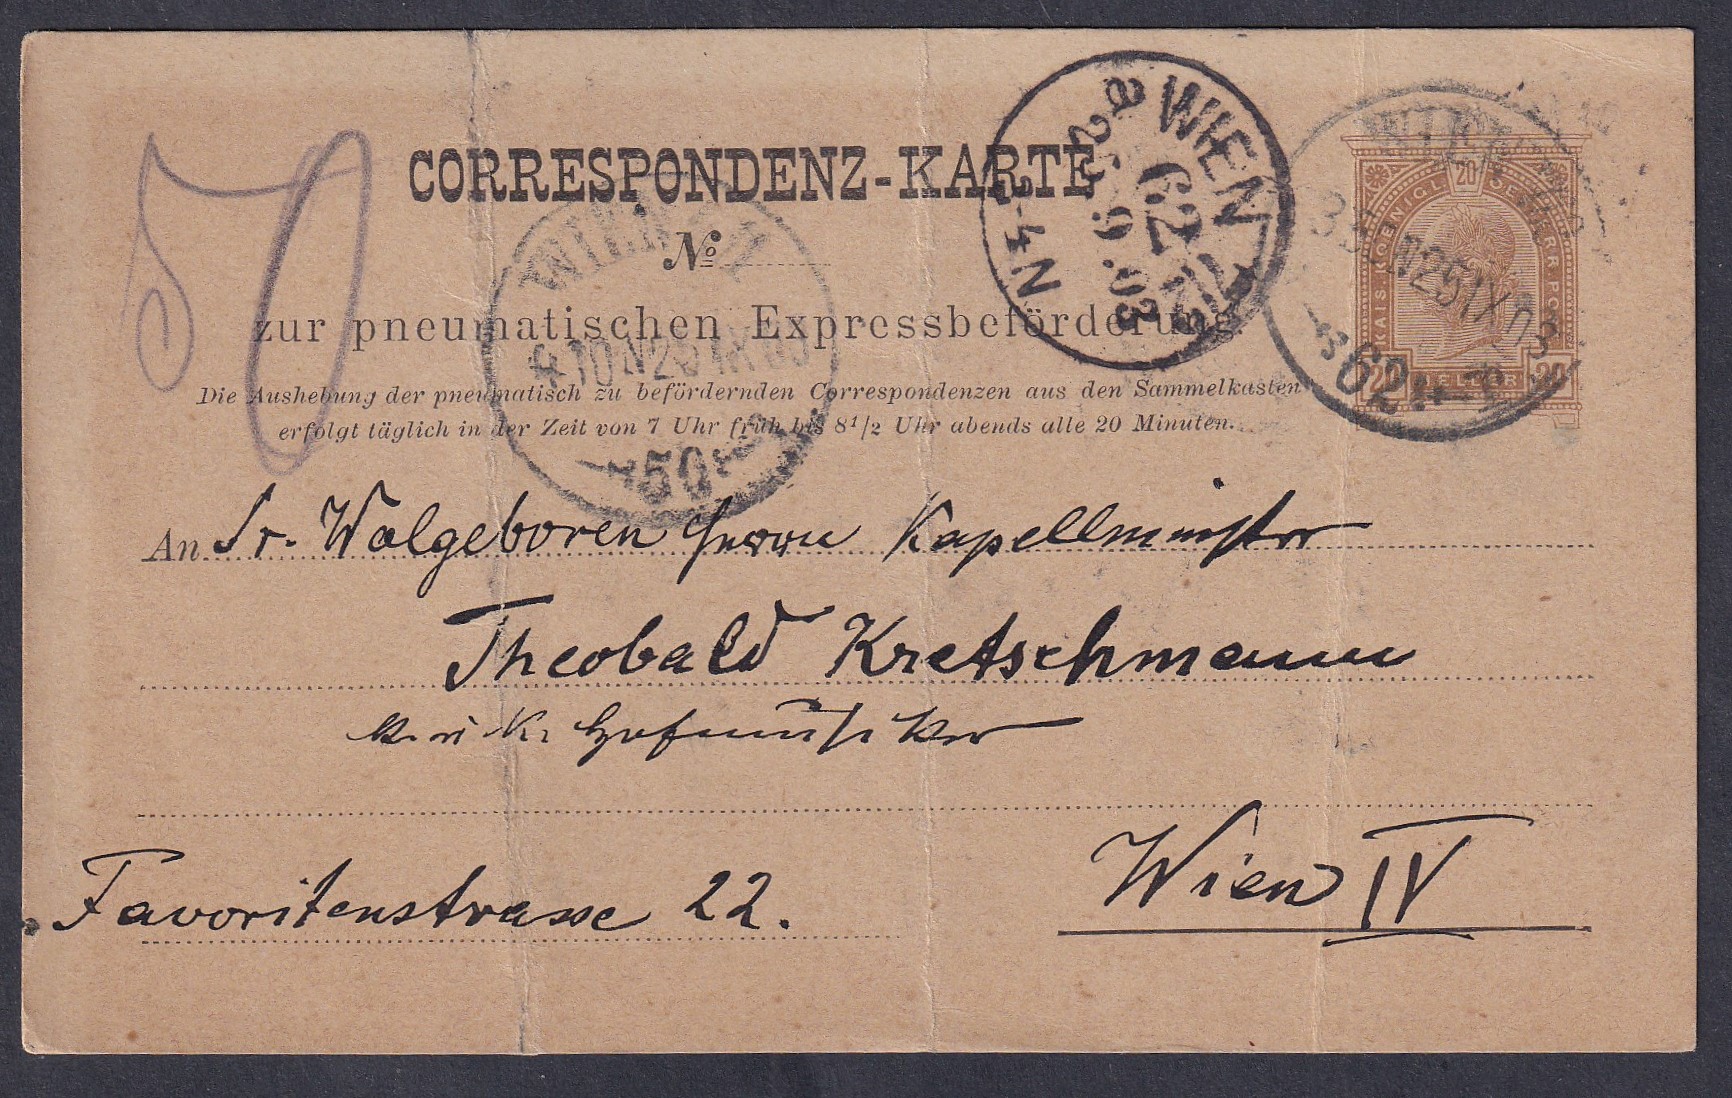 50
CORRESPONDENZ-KARTE
No
zur pneumatischen Expressbeförderung
Die Aushebung der pneumatisch zu befördernden Correspondenzen aus den Sammelkasten
erfolgt täglich in der Zeit von 7 Uhr früh bis 8 1/2 Uhr abends alle 20 Minuten.
WIEN
50
WIEN
62
9.03
4 N
WIEN
25 IX 03
62
KAIS. KOENIGL. OESTERR. POST
20
20 HELLER 20
An Sr. Wolgeboren Herrn Kapellmeister
Theobald Kretschmann
k. u. k. Hofmusiker
Wien IV
Favoritenstrasse 22.